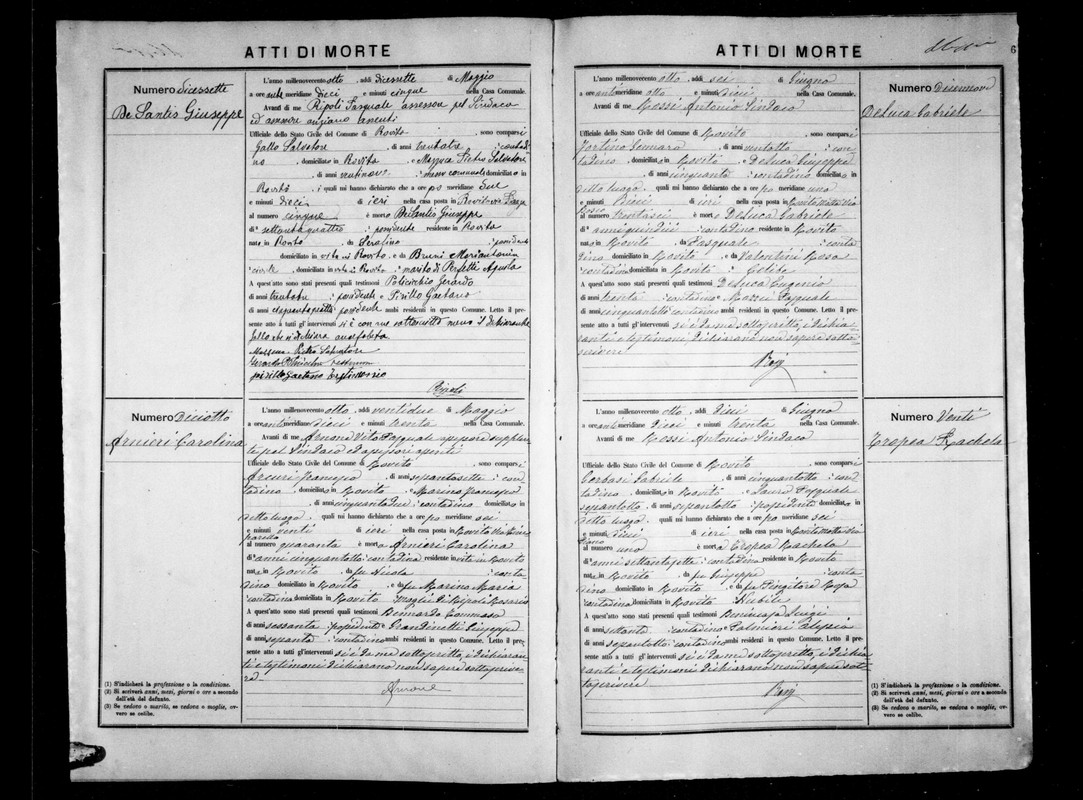 ATTI DI MORTE
Numero diciassette
De Santis Giuseppe
L'anno millenovecento otto, addì diciassette di Maggio
a ore antimeridiane dieci e minuti cinque nella Casa Comunale.
Avanti di me Ripoli Pasquale assessore pel Sindaco
ed assessore anziano assenti
Ufficiale dello Stato Civile del Comune di Rovito, sono comparsi
Gallo Salvatore, di anni trentatre contadi
no, domiciliato in Rovito e Mazzuca Pietro Salvatore
, di anni trentinove messo comunale domiciliato in
Rovito, i quali mi hanno dichiarato che a ore po meridiane due
e minuti dieci di ieri nella casa posta in Rovito
al numero cinque è morto De Santis Giuseppe
di settantaquattro possidente residente in Rovito
nato in Rovito da Serafino possidente
domiciliato in vita in Rovito e da Bruni Mariantonia
civile domiciliata in vita in Rovito marito di Perfetti
A quest'atto sono stati presenti quali testimoni Policicchio Gerardo
di anni trentatre possidente e Pirillo Gaetano
di anni possidente ambi residenti in questo Comune. Letto il pre-
sente atto a tutti gl'intervenuti si è con me sottoscritto meno il dichiarante
Gallo che si dichiara analfabeta
Mazzuca Pietro Salvatore
Gerardo Policicchio testimone
Pirillo Gaetano testimonio
Ripoli
Numero Diciotto
Arnieri Carolina
L'anno millenovecento otto, addì ventidue di Maggio
a ore antimeridiane dieci e minuti trenta nella Casa Comunale.
Avanti di me Arnone Vito Pasquale assessore supplen
te pel Sindaco ed assessori assenti
Ufficiale dello Stato Civile del Comune di Rovito, sono comparsi
Arcuri Francesco, di anni sessantasette con
tadino, domiciliato in Rovito Marino Francesco
, di anni cinquantadue contadino domiciliato in
detto luogo quali mi hanno dichiarato che a ore po meridiane sei
e minuti venti di ieri nella casa posta in Rovito Via
al numero quaranta è morta Arnieri Carolina
di anni cinquantotto contadina residente in vita in Rovito
nata in Rovito da fu Nicola conta
dino domiciliato in Rovito e da fu Marino Maria
contadina domiciliata in Rovito moglie di Ripoli Rosario
A quest'atto sono stati presenti quali testimoni Bennardo Tommaso
di anni sessanta possidente e Grandinetti Giuseppe
di anni sessanta contadino ambi residenti in questo Comune. Letto il pre-
sente atto a tutti gl'intervenuti si è da me sottoscritto, i dichiaran
ti e testimoni dichiarano non sapere sottoscrive
re
Arnone
(1) S'indicherà la professione o la condizione.
(2) Si scriverà anni, mesi, giorni o ore a seconda
dell'età del defunto.
(3) Se vedovo o marito, se vedova o moglie, ov-
vero se celibe.
ATTI DI MORTE
6
L'anno millenovecento otto, addì sei di Giugno
a ore antimeridiane otto e minuti dieci nella Casa Comunale.
Avanti di me Rossi Antonio Sindaco
Ufficiale dello Stato Civile del Comune di Rovito, sono comparsi
Fortino Gennaro, di anni ventotto con
tadino, domiciliato in Rovito DeLuca Giuseppe
, di anni cinquanta contadino domiciliato in
detto luogo quali mi hanno dichiarato che a ore po meridiane una
e minuti dieci di ieri nella casa posta in Rovito Via
al numero trentasei è morto DeLuca Gabriele
di anni quindici contadino residente in Rovito
nato in Rovito da Pasquale conta
dino domiciliato in Rovito e da Valentini Rosa
contadina domiciliata in Rovito Celibe
A quest'atto sono stati presenti quali testimoni DeLuca Eugenio
di anni trenta contadino Mazzei Pasquale
di anni cinquantotto contadino ambi residenti in questo Comune. Letto il pre-
sente atto a tutti gl'intervenuti si è da me sottoscritto, i dichia
ranti e testimoni dichiarano non sapere sotto
scrivere
Rossi
Numero Diciannove
DeLuca Gabriele
L'anno millenovecento otto, addì dieci di Giugno
a ore antimeridiane dieci e minuti trenta nella Casa Comunale.
Avanti di me Rossi Antonio Sindaco
Ufficiale dello Stato Civile del Comune di Rovito, sono comparsi
Corbasi Gabriele, di anni cinquantotto con
tadino, domiciliato in Rovito Lauro Pasquale
sessantotto, di anni sessantotto possidenti domiciliato in
detto luogo quali mi hanno dichiarato che a ore po meridiane sei
e minuti dieci di ieri nella casa posta in Rovito Via
al numero uno è morta Tropea Rachela
di anni settantasette contadina residente in Rovito
nata in Rovito da fu Giuseppe conta
dino domiciliato in Rovito e da fu Pingitore Rosa
contadina domiciliata in Rovito Nubile
A quest'atto sono stati presenti quali testimoni Beniincasa Luigi
di anni settanta contadino Palmieri Alessio
di anni sessantotto contadino ambi residenti in questo Comune. Letto il pre-
sente atto a tutti gl'intervenuti si è da me sottoscritto, i dichia
ranti e testimoni dichiarano non sapere sot
toscrivere
Rossi
Numero Venti
Tropea Rachela
(1) S'indicherà la professione o la condizione.
(2) Si scriverà anni, mesi, giorni o ore a seconda
dell'età del defunto.
(3) Se vedovo o marito, se vedova o moglie, ov-
vero se celibe.